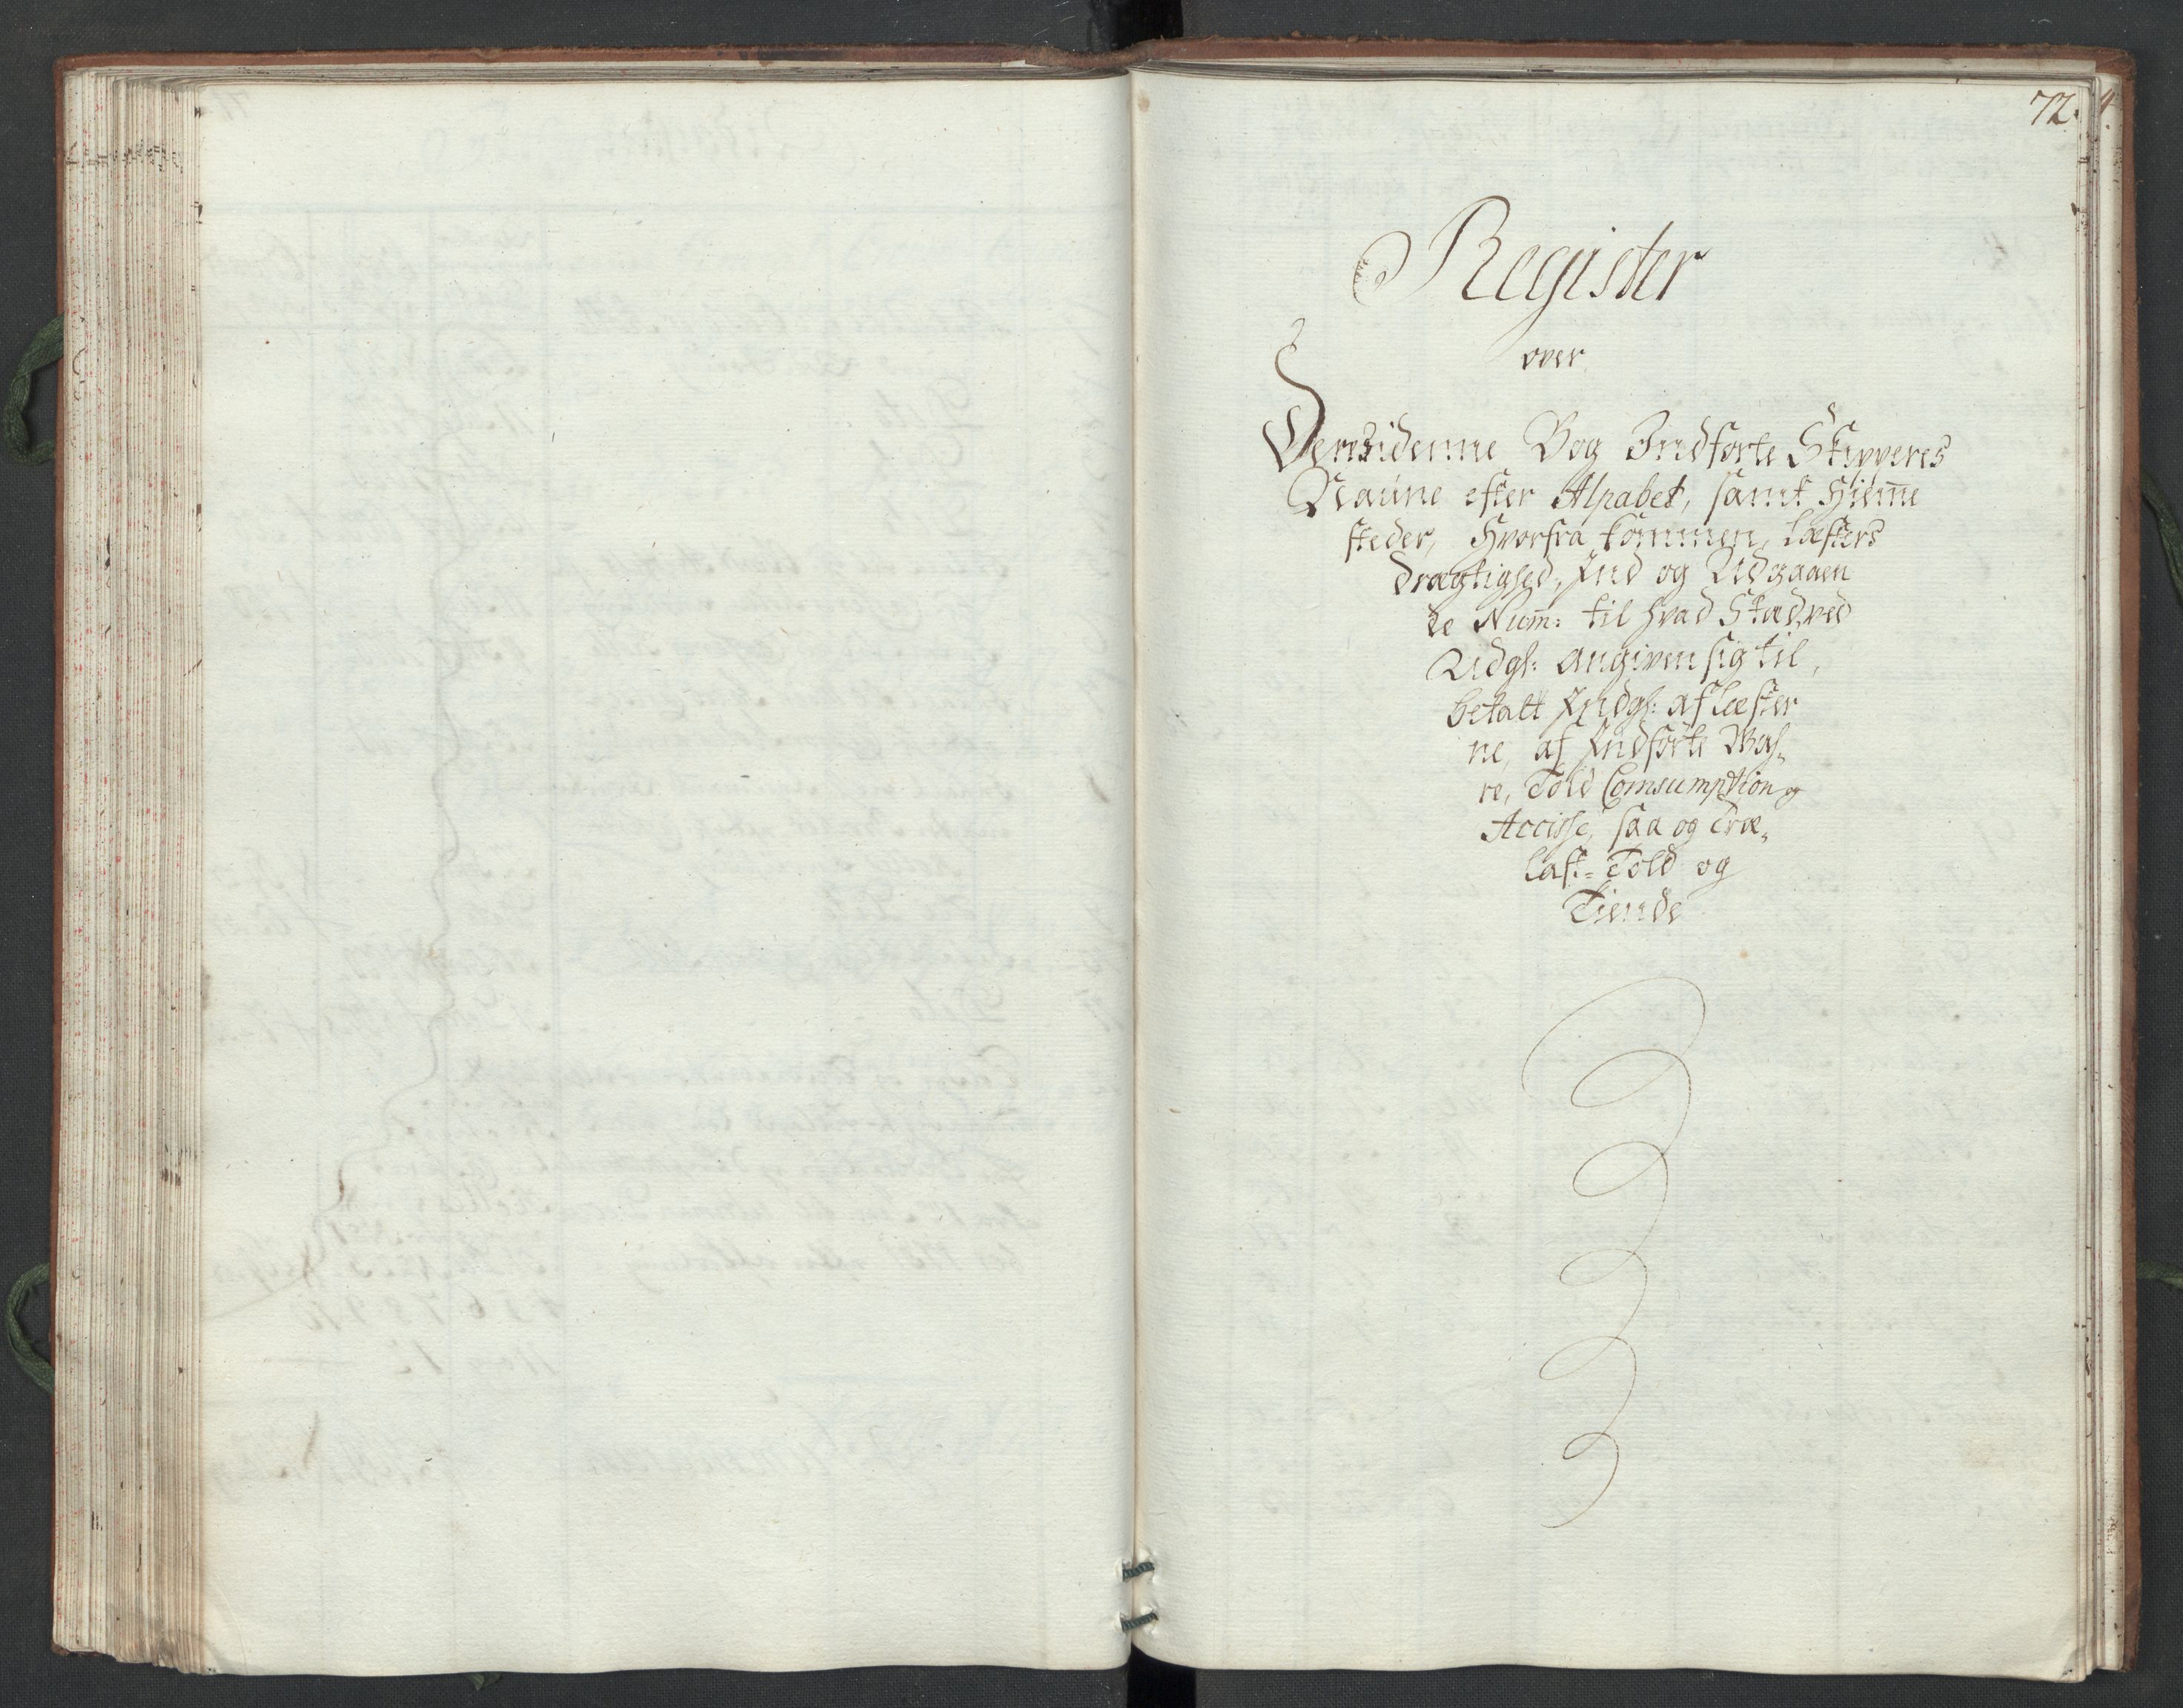 72.
Register
over
Deres i denne Bog Indførte Skipperes
Naune efter Alpabet, samt Hiem̄e
steder, Hvorfra kommen, Læsters
drægtighed, Ind og Udgaaen
de Num̄: til hvad Stæd, ved
Udgk: angiven sig til,
betalt Indgk: af Læster
ne, af Indførte Wah„
re, Told Comsumption og
Accisse, saa og Træ„
last=Told og
Tiende